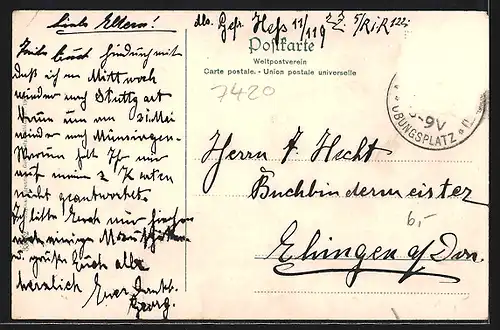 Liebe Eltern!
Teile Euch hierdurch mit
daß ich am Mittwoch
wieder nach Stuttgart
komme am 3. Mai
wieder nach Münsingen.
Warum habt Ihr mir
auf meine 2 Karten
nicht geantwortet.
Ich bitte Euch mir
noch einige
u. grüße Euch alle
herzlich Euer dankb.
Georg.
Abs. Gefr. Hess 11/119
5/R.I.R 122
Postkarte
Weltpostverein
Carte postale. - Union postale universelle
7420
ÜBUNGSPLATZ
Herrn J. Hecht
Buchbindermeister
6,-
Ehingen a/Don.